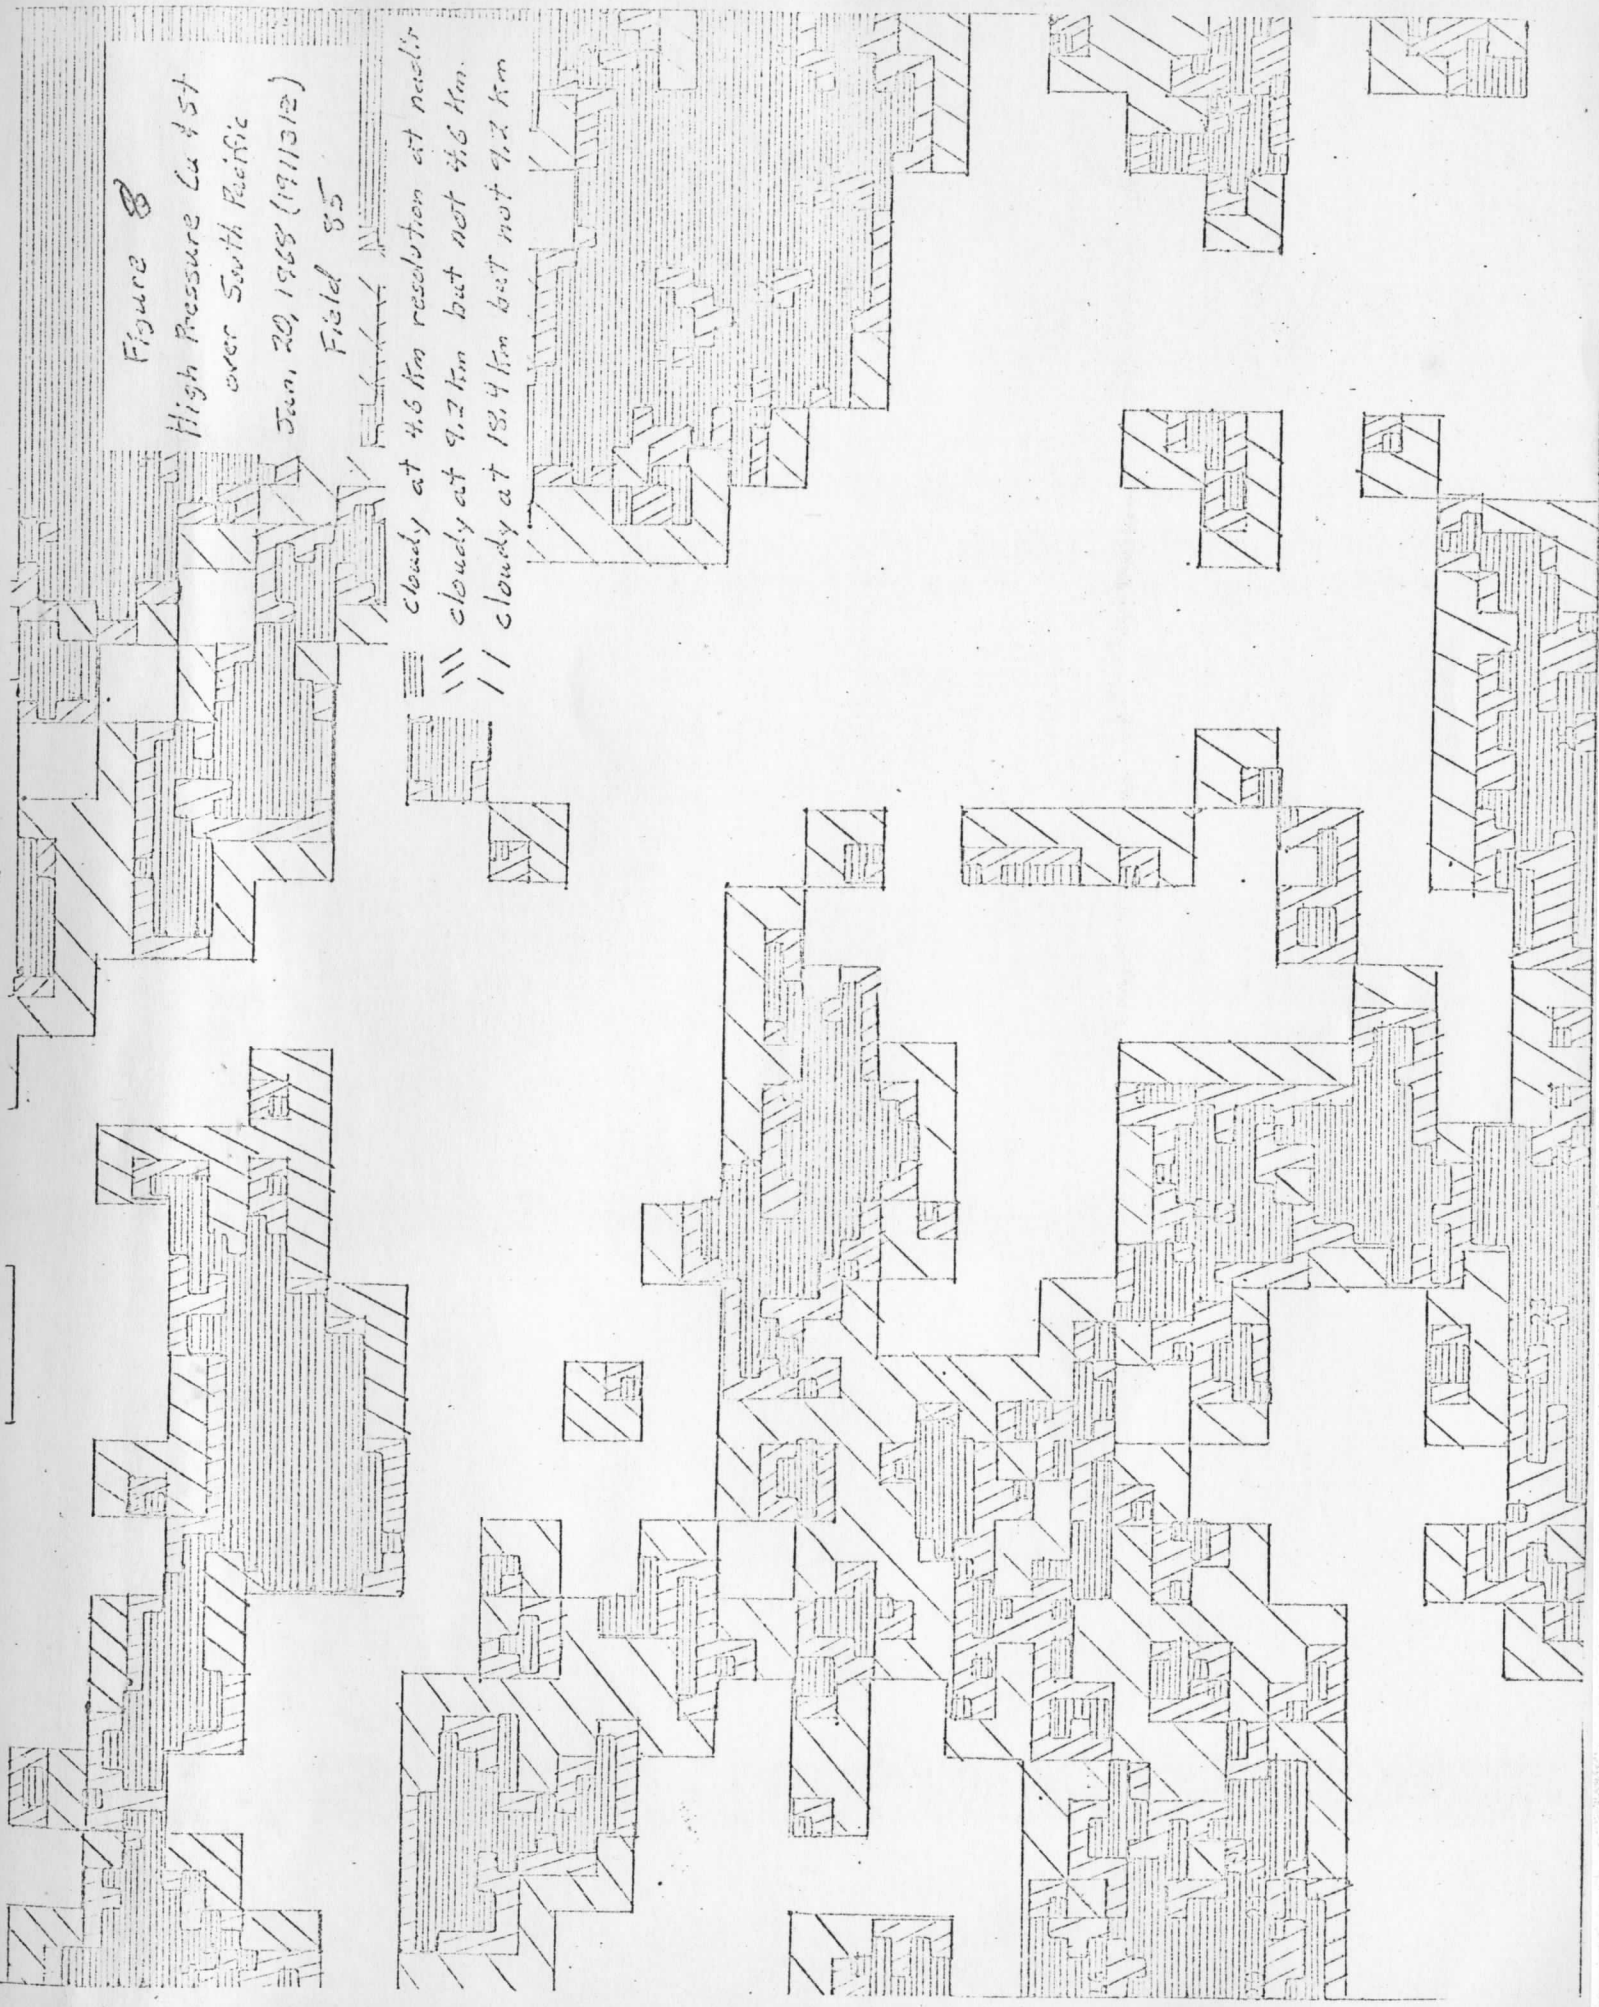 Figure 8
High Pressure Cu & St
over South Pacific
Jan. 20, 1968 (191131Z)
Field 85
cloudy at 4.6 Km resolution at nadir
cloudy at 9.2 km but not 4.6 Km.
cloudy at 18.4 km but not 9.2 km